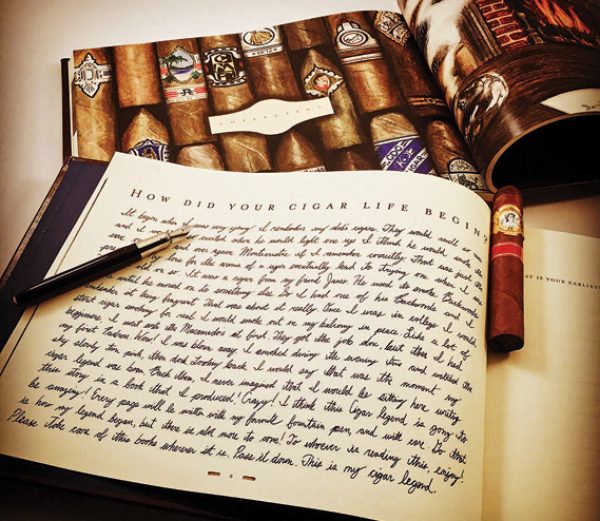 CONNECTICUT
HOW DID YOUR CIGAR LIFE BEGIN?
AT IS YOUR EARLIEST
It began when I was very young. I remember my dad's cigars. They would smell so
and I would get excited when he would light one up. I think he would smoke the
over and over again. Montecristo if I remember correctly. That was just the
my love for the aroma of a cigar eventually lead to trying one when I was
old or so. It was a cigar from my friend James. He used to smoke
until he moved on to something else. So I had one of his and I
remember it being fragrant. That was about it really. Once I was in college I would
start cigar smoking for real. I would smoke out on my balcony in peace. Like a lot of
beginners I went with the Macanudos at first. They got the job done, but then I had
my first Padron. Wow! I was blown away. I smoked during the evening time and watched the
sky slowly turn pink, then red. Looking back, I would say that was the moment my
cigar legend was born. Back then, I never imagined that I would be sitting here writing
this story in a book that I produced! Crazy! I think this cigar legend is going to
be amazing! Every page will be written with my favorite fountain pen and with care. So that
is how my legend began, but there is alot more to come! To whoever is reading this, enjoy!
Please take care of this book wherever it is. Pass it down. This is my cigar legend.